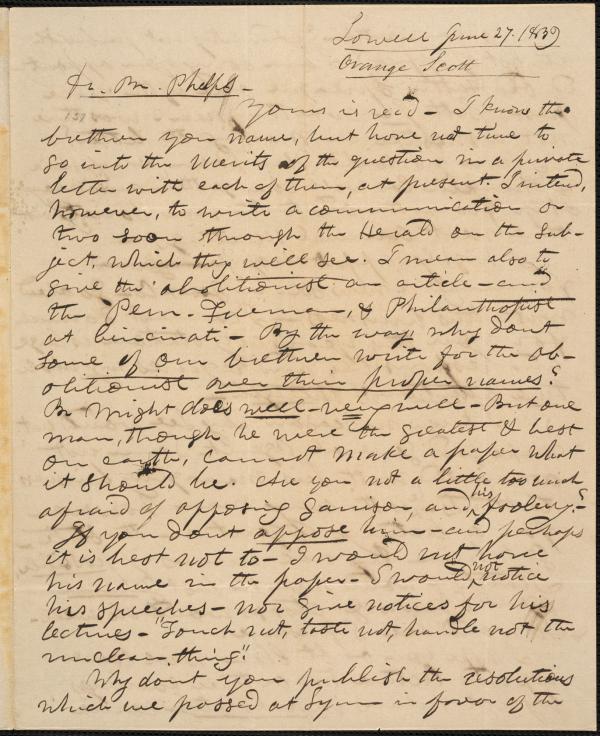 Lowell June 27. 1839
Orange Scott
Dr. Br. Phelps -
Yours is read - I know the
brethren you name, but have not time to
go into the merits of the question in a private
letter with each of them, at present. I intend,
however, to write a communication or
two soon through the Herald on the sub-
ject, which they will see. I mean also to
give the "abolitionist" an article - and
the Penn. Freeman, & Philanthropist
at Cincinati - By the way, why dont
some of our brethren write for the ab-
olitionist over their proper names?
Br Wright does well - very well - But one
man, though he were the greatest & best
on earth, cannot make a paper what
it should be. Are you not a little too much
afraid of opposing Garrison, and his foolery? -
If you dont oppose him - and perhaps
it is best not to - I would not have
his name in the paper - I would not notice
his speeches - nor give notices for his
lectures - "Touch not, taste not, handle not the
unclean thing."
Why dont you publish the resolutions
which we passed at Lynn in favor of the